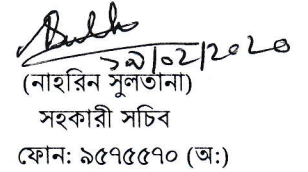 ১৯/০২/২০২০
(নাহরিন সুলতানা)
সহকারী সচিব
ফোন: ৯৫৭৫৫৭০ (অ:)